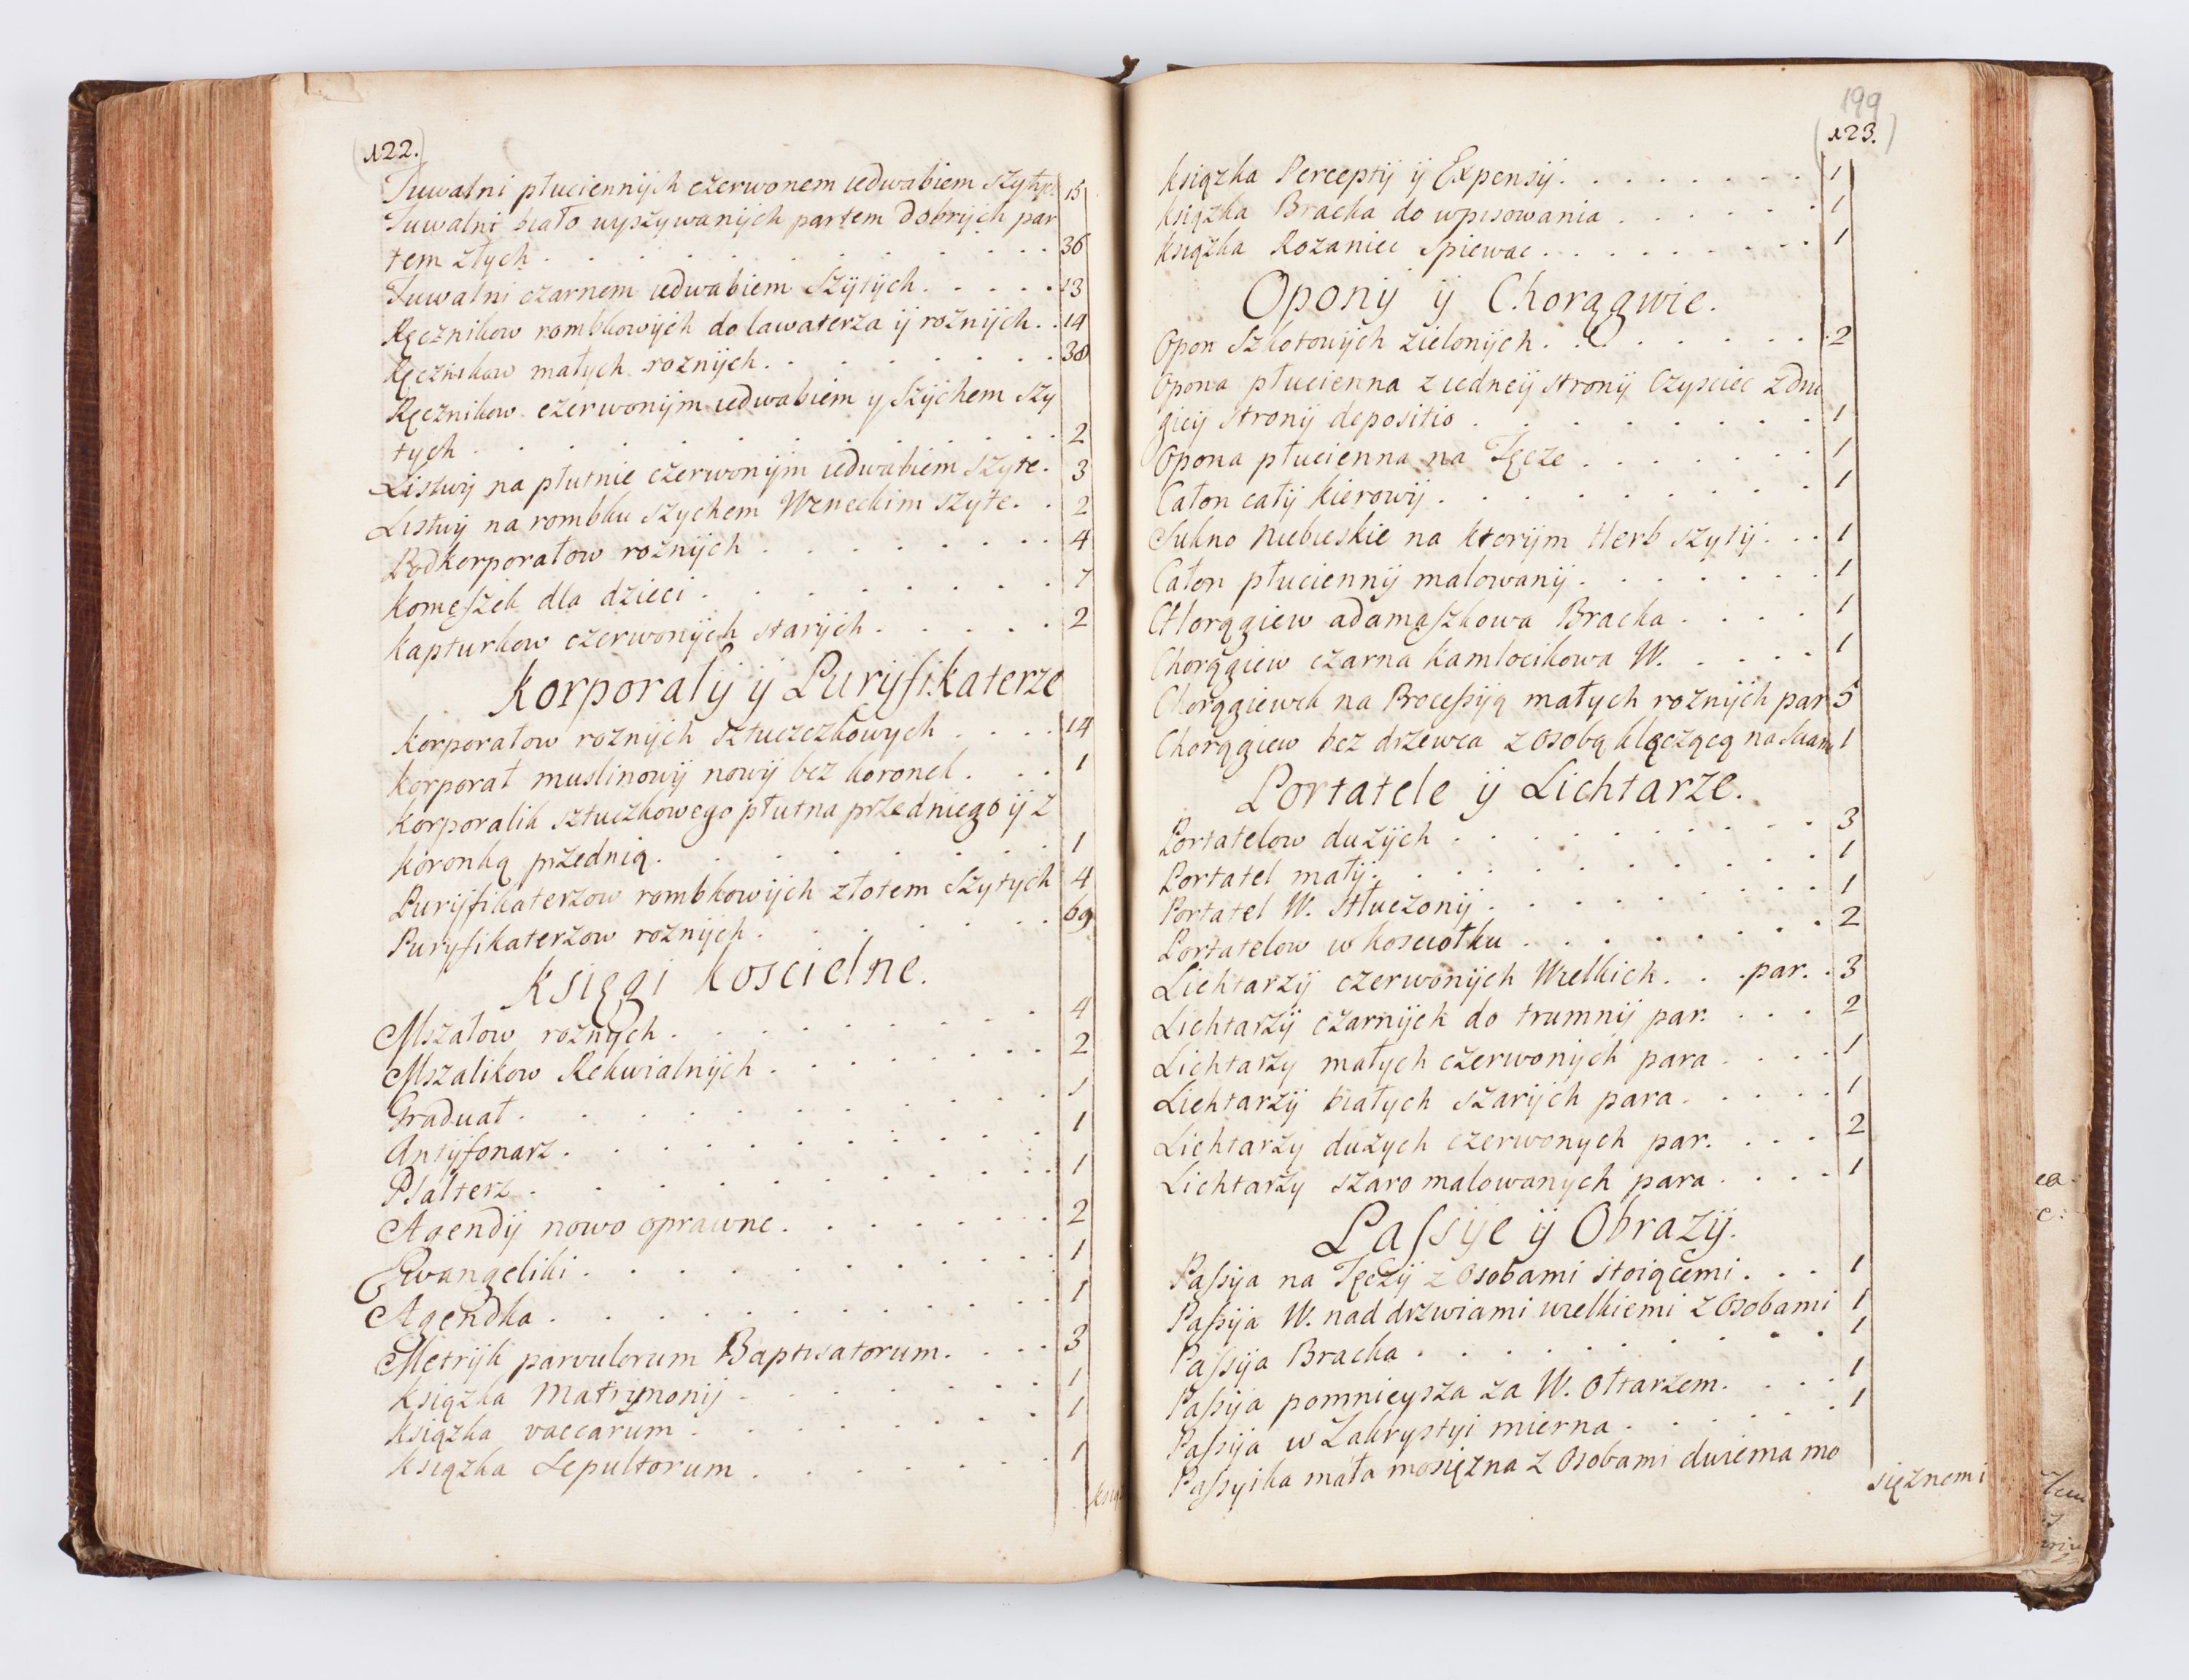 (122.)
Tuwalni płuciennijch czerwonem iedwabiem szytyc. 15
Tuwalni biało wyszywanijch partem dobrijch par
tem złych . . . . . . . . . . 36
Tuwalni czarnem iedwabiem szijtijch . . . . . 13
Ręcznikow rombkowijch do lawaterza ij rożnijch . . 14
Ręcznikow małych rożnijch . . . . . . . . 38
Ręcznikow czerwonijm iedwabiem y szijchem szy
tych . . . . . . . . . . . . 2
Listwij na płutnie czerwonijm iedwabiem szyte . 3
Listwij na rombku szychem Weneckim szyte . . 2
Podkorporałow rożnijch . . . . . . . . . 4
Komęszek dla dzieci . . . . . . . . 7
Kapturkow czerwonijch starijch . . . . . 2
Korporałij ij Purijfikaterze
Korporałow rożnijch sztuczczkowych . . . . 14
Korporał muslinowij nowij bez koronek . . . 1
Korporalik sztuczkowego płutna przedniego ij z
koronką przednią . . . . . . . . . 1
Purijfikaterzow rombkowijch złotem szytych 4
Puryfikaterzow rożnijch . . . . . . . 69
Księgi koscielne.
Mszałow rożnych . . . . . . . . . 4
Mszalikow Rekwialnijch . . . . . . . 2
Graduał . . . . . . . . . . 1
Antijfonarz . . . . . . . . . . 1
Psalterz . . . . . . . . . . 1
Agendij nowo oprawne . . . . . . . 2
Ewangeliki . . . . . . . . . . 1
Agendka . . . . . . . . . . . 1
Metrijk parvulorum Baptisatorum . . . . 3
Ksiązka Matrimonij . . . . . . . . 1
Ksiązka vaccarum . . . . . . . . 1
Ksiązka Sepultorum . . . . . . . . 1
199
(123.)
Ksiązka Perceptij ij Expensij . . . . . . . . 1
Ksiązka Bracka do wpisowania . . . . . . 1
Ksiązka Rozaniec spiewac . . . . . . . . 1
Oponij ij Chorągwie.
Opon szkotowijch zielonijch . . . . . . . . 2
Opona płucienna z iedneij stronij Czysciec z dru
gieij stronij depositio . . . . . . . . 1
Opona płucienna na Tęcze . . . . . . . 1
Całon całij kierowij . . . . . . . . . 1
Sukno Niebieskie na ktorijm Herb szytij . . . 1
Całon płuciennij malowanij . . . . . . . 1
Chorągiew adamaszkowa Bracka . . . . 1
Chorągiew czarna kamlocikowa W. . . . . 1
Chorągiewek na Processyią małych rożnijch par 5
Chorągiew bez drzewca z osobą klęczącą 1
Portatele ij Lichtarze.
Portatelow dużijch . . . . . . . . . . 3
Portatel małij . . . . . . . . . . 1
Portatel W. stłuczonij . . . . . . . . 1
Portatelow w kosciołku . . . . . . . . 2
Lichtarzij czerwonijch Wielkich . . . par. . 3
Lichtarzij czarnijch do trumnij par. . . . 2
Lichtarzy małych czerwonijch para . . . . 1
Lichtarzij białych szarijch para . . . . . 1
Lichtarzy dużych czerwonych par. . . . 2
Lichtarzy szaro malowanych para . . . . 1
Passije ij Obrazij.
Passija na Tęczij z osobami stoiącemi . . . 1
Passija W. nad drzwiami wielkiemi z Osobami 1
Passija Bracka . . . . . . . . . . 1
Passija pomnieysza za W. Ołtarzem . . . . 1
Passija w Zakrystyi mierna . . . . . . 1
Passyika mała mosiężna z Osobami dwiema mo
siężnemi